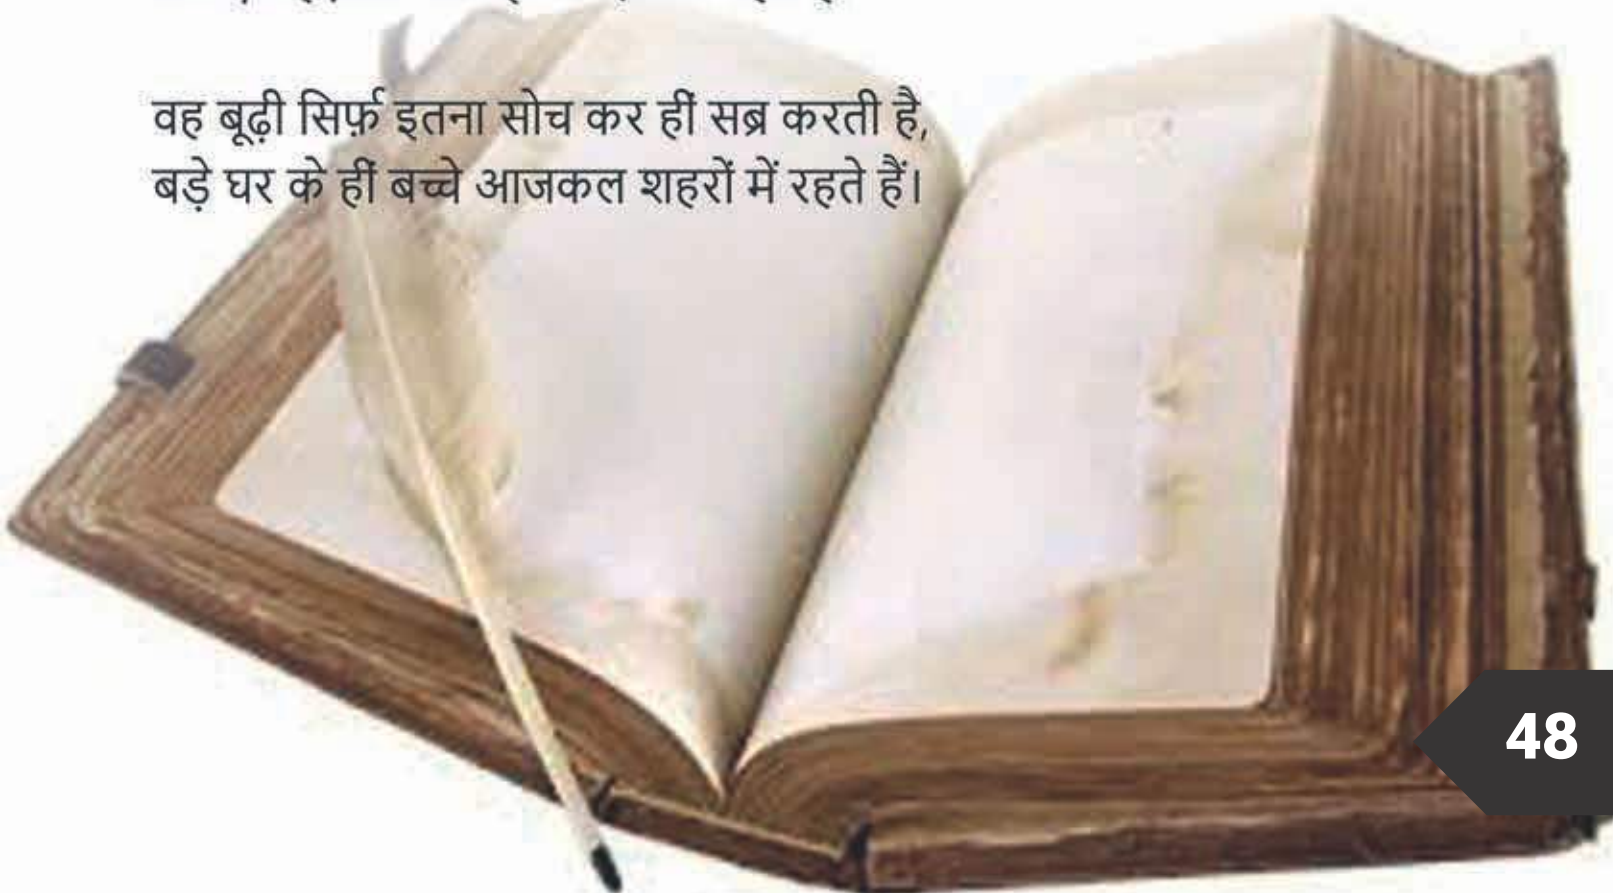 वह बूढ़ी सिर्फ़ इतना सोच कर हीं सब्र करती है,
बड़े घर के हीं बच्चे आजकल शहरों में रहते हैं।
48